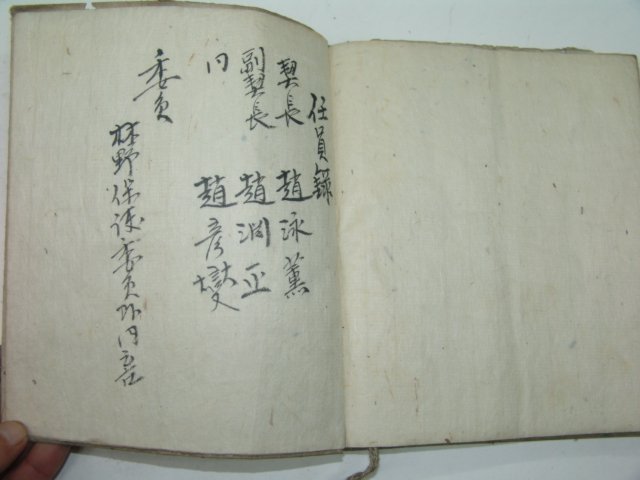 任員錄
契長 趙泳薰
副契長 趙潤正
〃 趙彦燮
委員
林野保護委員